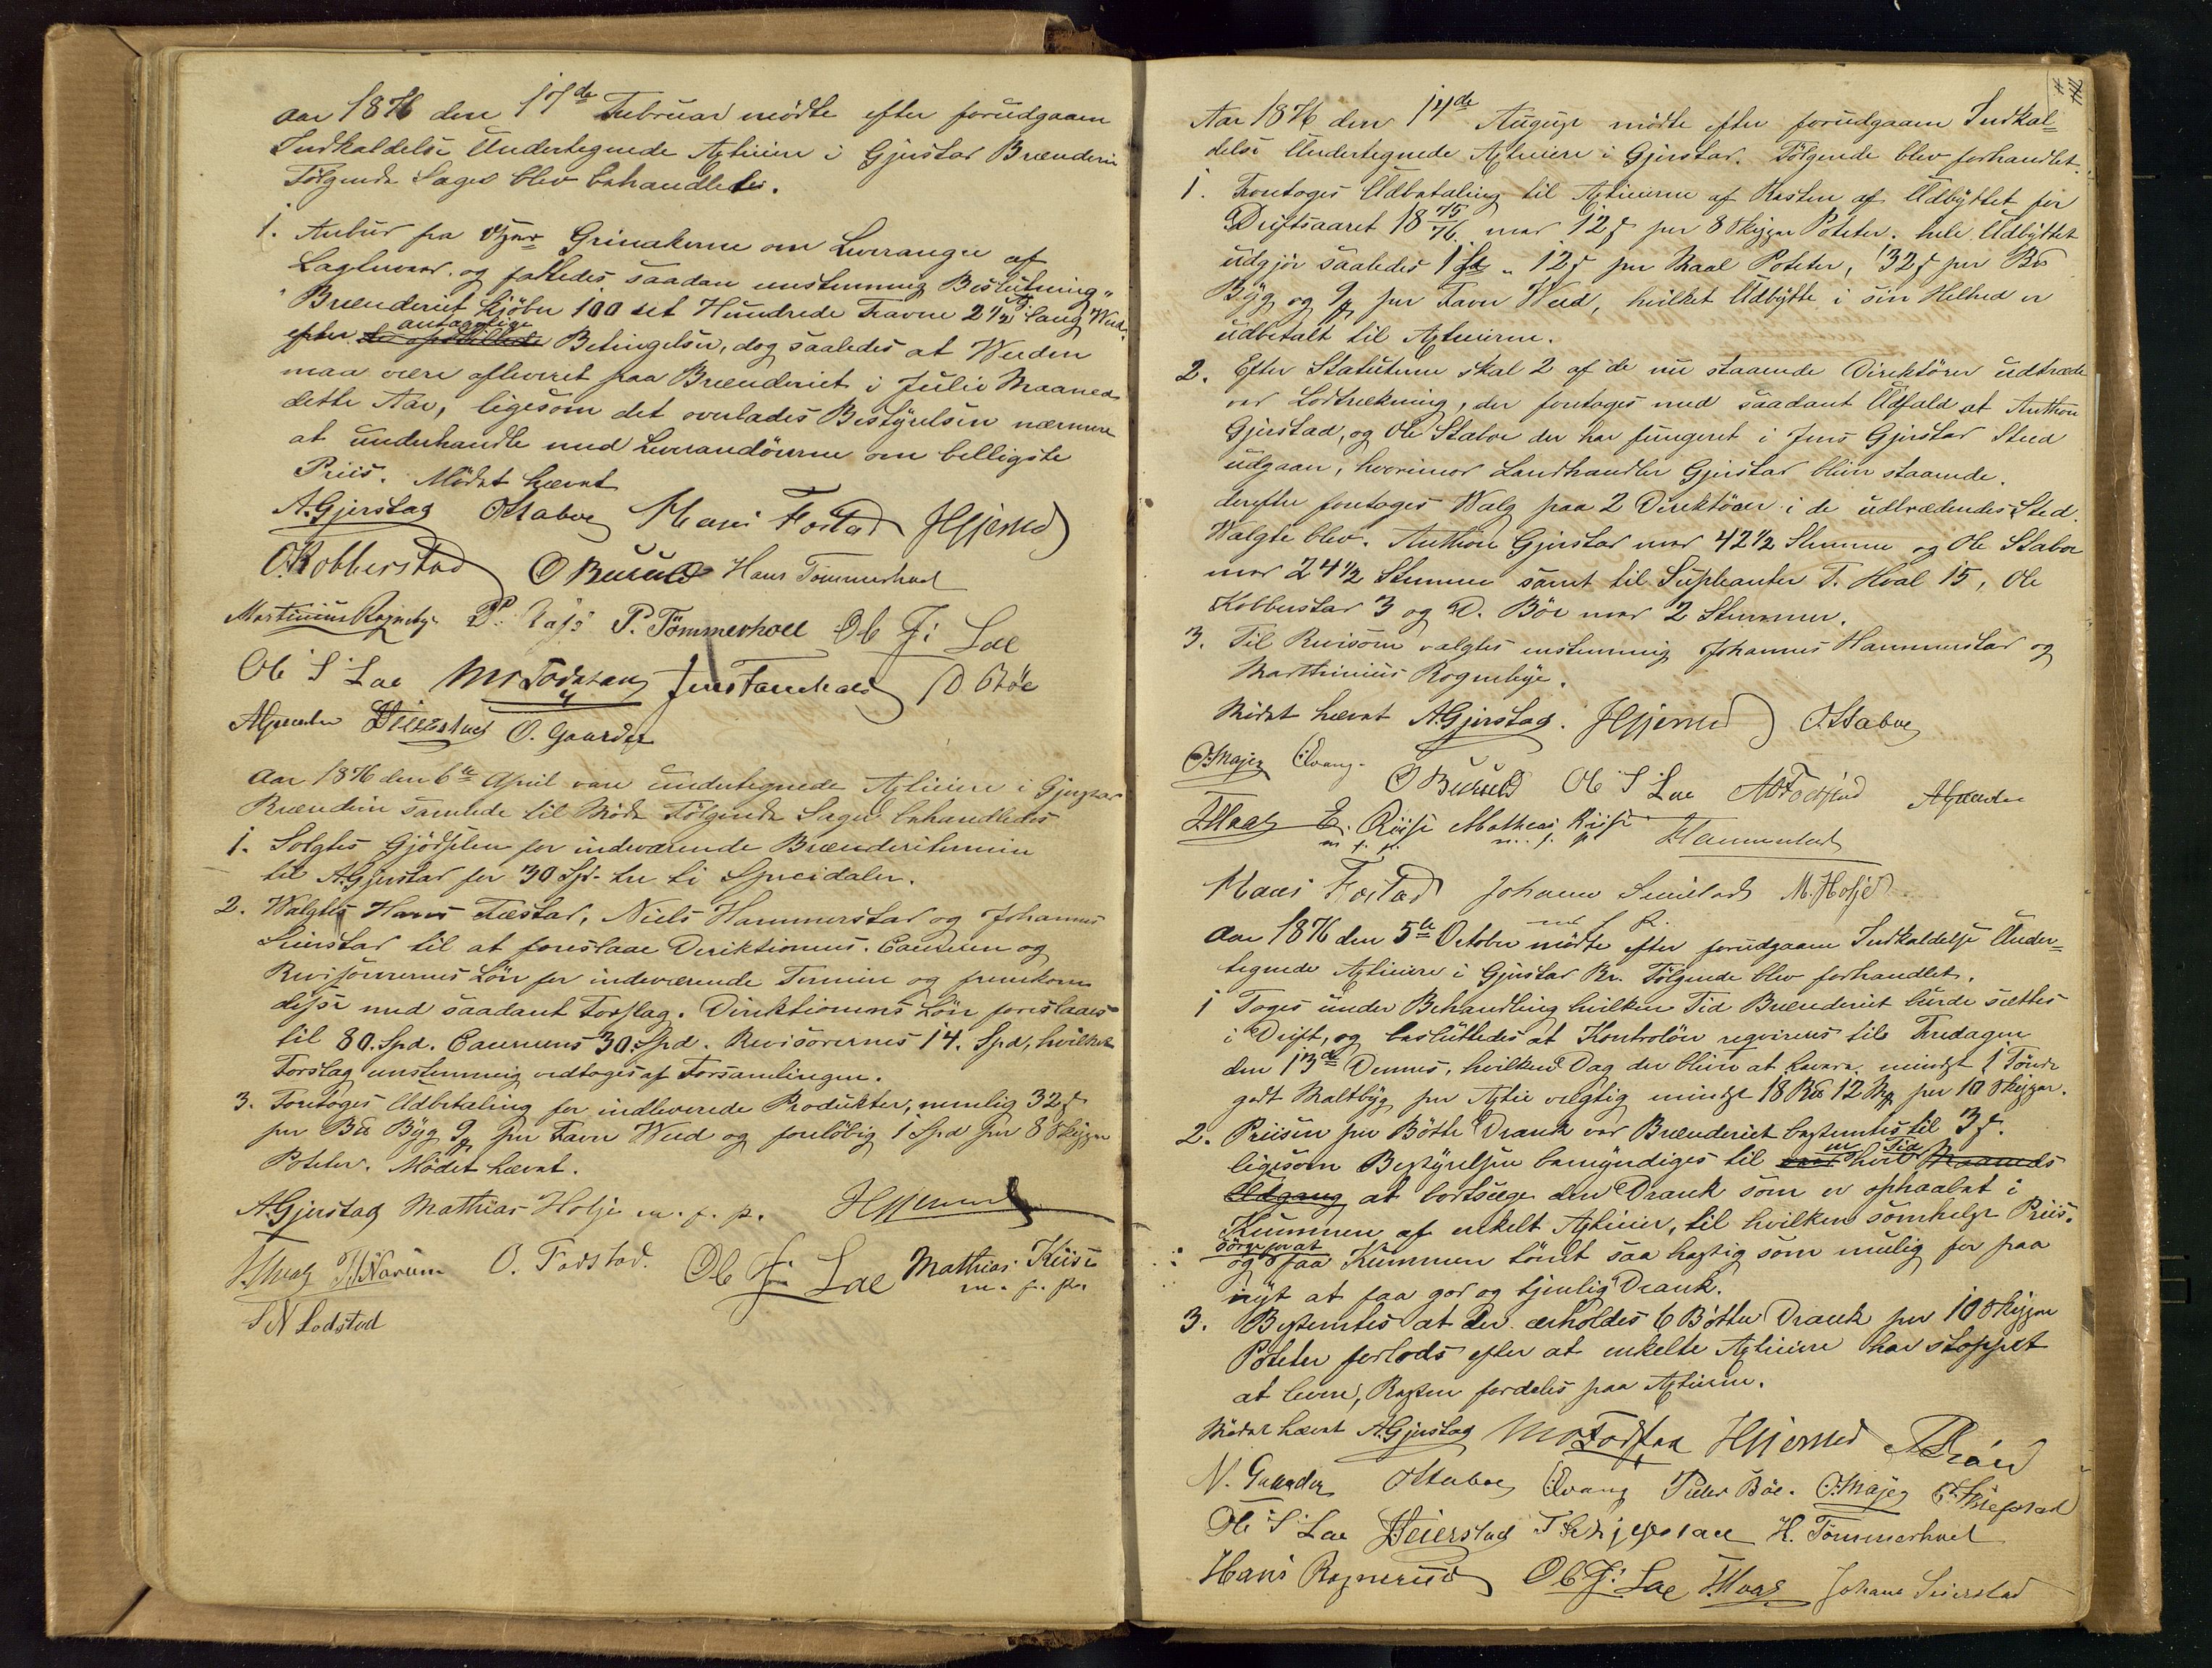 Aar 1876 den 17de Februar mödte efter forudgaaen
Indkaldelse Undertegnede Aktieiere i Gjerstad Brænderie
Følgende Sager blev behandledes.
1. Anbud fra Grinakerne om Leverangse af
og fattedes saadan enstemmig Beslutning
"Brænderiet kjöber 100 set Hundrede Favne 2 1/2 lang Wed
efter antagelige Betingelser, dog saaledes at Weden
maa være afleveret paa Brænderiet i Julie Maaned
dette Aar, ligesom det overlades Bestyrelsen nærmere
at underhandle med Leverandörerne om billigste
Priis. Mödet hævet
A. Gjerstad OStaboe Hans Fostad HGjersted
O. Kobberstad O Hans Tömmerhoel
Martinius Rognebye P. P. Tömmerhoel Ole J: Lae
Ole S Lae D Böe
O. Gaarder
Aar 1876 den 6te April vare undertegnede Aktieiere i Gjerstad
Brænderie samlede til Möde Følgende Sager behandledes
1. Solgtes Gjödselen for indeværende Brænderitermin
til A. Gjerstad for 30 Spd. tre ti Speciedaler.
2. Walgtes Hans Fæstad, Niels Hammerstad og Johannes
Seierstad til at foreslaae Direktionens, Casseren og
Revisorernes Lön for indeværende Termin og fremkom
disse med saadant Forslag. Direktionens Lön foreslaaes
til 80. Spd. Caserens 30. Spd. Revisorernes 14. Spd, hvilket
Forslag enstemmig vedtoges af Forsamlingen.
3. Foretoges Udbetaling for indleverede Produkter, nemlig 32 s
per Bd Byg per Favn Wed og foreløbig 1 Spd per 8 Skjepper
Poteter. Mödet hævet.
A. Gjerstad Mathias Holje m. f. p. HGjersted
T. Hval H Narum O. Fodstad. Ole J: Lae Mathias Kiise
m. f. p.
S N Lodstad
Aar 1876 den 14de August mödte efter forudgaaen Indkal=
delse Undertegnede Aktieiere i Gjerstad. Følgende blev forhandlet.
1. Foretoges Udbetaling til Aktieierne af Resten af Udbyttet for
Driftsaaret 1875/76. med 12 s per 8 Skjepper Poteter. hele Udbyttet
udgjör saaledes 1 Spd " 12 s per Maal Poteter, 32 s per Bd
Byg og per Favn Wed, hvilket Udbytte i sin Helhed er
udbetalt til Aktieierne.
2. Efter Statuterne skal 2 af de nu staaende Direktörer udtræde
ved Lodtrækning, der foretoges med saadant Udfald at Anthon
Gjerstad, og Ole Staboe der har fungeret i Jens Gjerstad Sted
udgaar, hvorimod Landhandler Gjerstad bliver staaende.
derefter foretoges Walg paa 2 Direktörer i de udtrædendes Sted.
Walgte blev. Anthon Gjerstad med 42 1/2 Stemme og Ole Staboe
med 24 1/2 Stemmer samt til Supleanter T. Hval 15, Ole
Kobberstad 3 og D. Böe med 2 Stemmer.
3. Til Revisorer valgtes enstemmig Johannes Hammerstad og
Marthinius Rognebye.
Mödet hævet A. Gjerstad. HGjersted OStaboe
O. Majer Qvang. O Ole S Lae
T. Hval E. Riise Mathias Kiise Hammerstad
m. f. p. m. f. p.
Hans Fostad Johannes Seierstad M. Holje
m. f. p.
Aar 1876 den 5te October mödte efter forudgaaen Indkaldelse Under=
tegnede Aktieiere i Gjerstad Br. Følgende blev forhandlet.
1 Toges under Behandling hvilken Tid Brænderiet burde sættes
i Drift, og besluttedes at Kontrolön reqvireres til Fredagen
den 13de Dennes, hvilken Dag der bliver at levere mindst 1 Tönde
godt Maltbyg per Aktie vegtig mindst 18 Bd 12 per 10 Skjepper.
2. Priisen per Bötte Drank ved Brænderiet bestemtes til 3 s.
ligesom Bestyrelsen bemyndiges til en hver Tid Maaneds
Udgang at bortsælge den Drank som er ophaalet i
Kummen af enkelt Aktieier, til hvilken somhelst Priis.
og sörge for at faa Kummen tömt saa hastig som mulig for paa
nyt at faa god og tjenlig Drank.
3. Bestemtes at der erholdes 6 Bötter Drank per 10 Skjepper
Poteter forlods efter at enkelte Aktieiere har stoppet
at levere, Resten fordeles paa Aktierne.
Mödet hævet A. Gjerstad HGjersted
N. Gaarder OStaboe Qvang Peder Böe. O. Majer
Ole S Lae Seierstad H. Tömmerhoel
Hans Rognerud Ole J: Lae T. Hval Johannes Seierstad